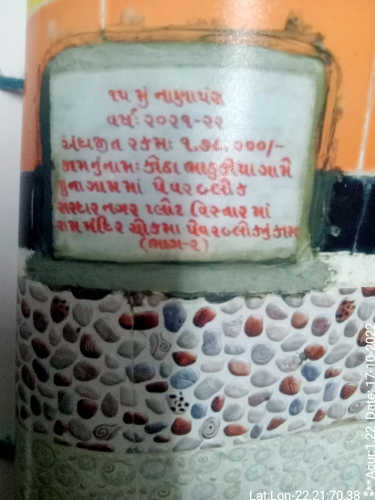 ૧૫ મું નાણાપંચ
વર્ષ: ૨૦૨૧-૨૨
અંદાજીત રકમ: ૧,૭૮,૦૦૦/-
કામનું નામ: કોઠા ભાડુકીયા ગામે
જુના ગામ માં પેવર બ્લોક
સરદાર નગર પ્લોટ વિસ્તાર માં
રામ મંદિર ચોકમા પેવર બ્લોકનું કામ
(ભાગ-૨)
Lat:Lon-22.21:70.38 ***Agur:1.22 Date:-17-10-2022